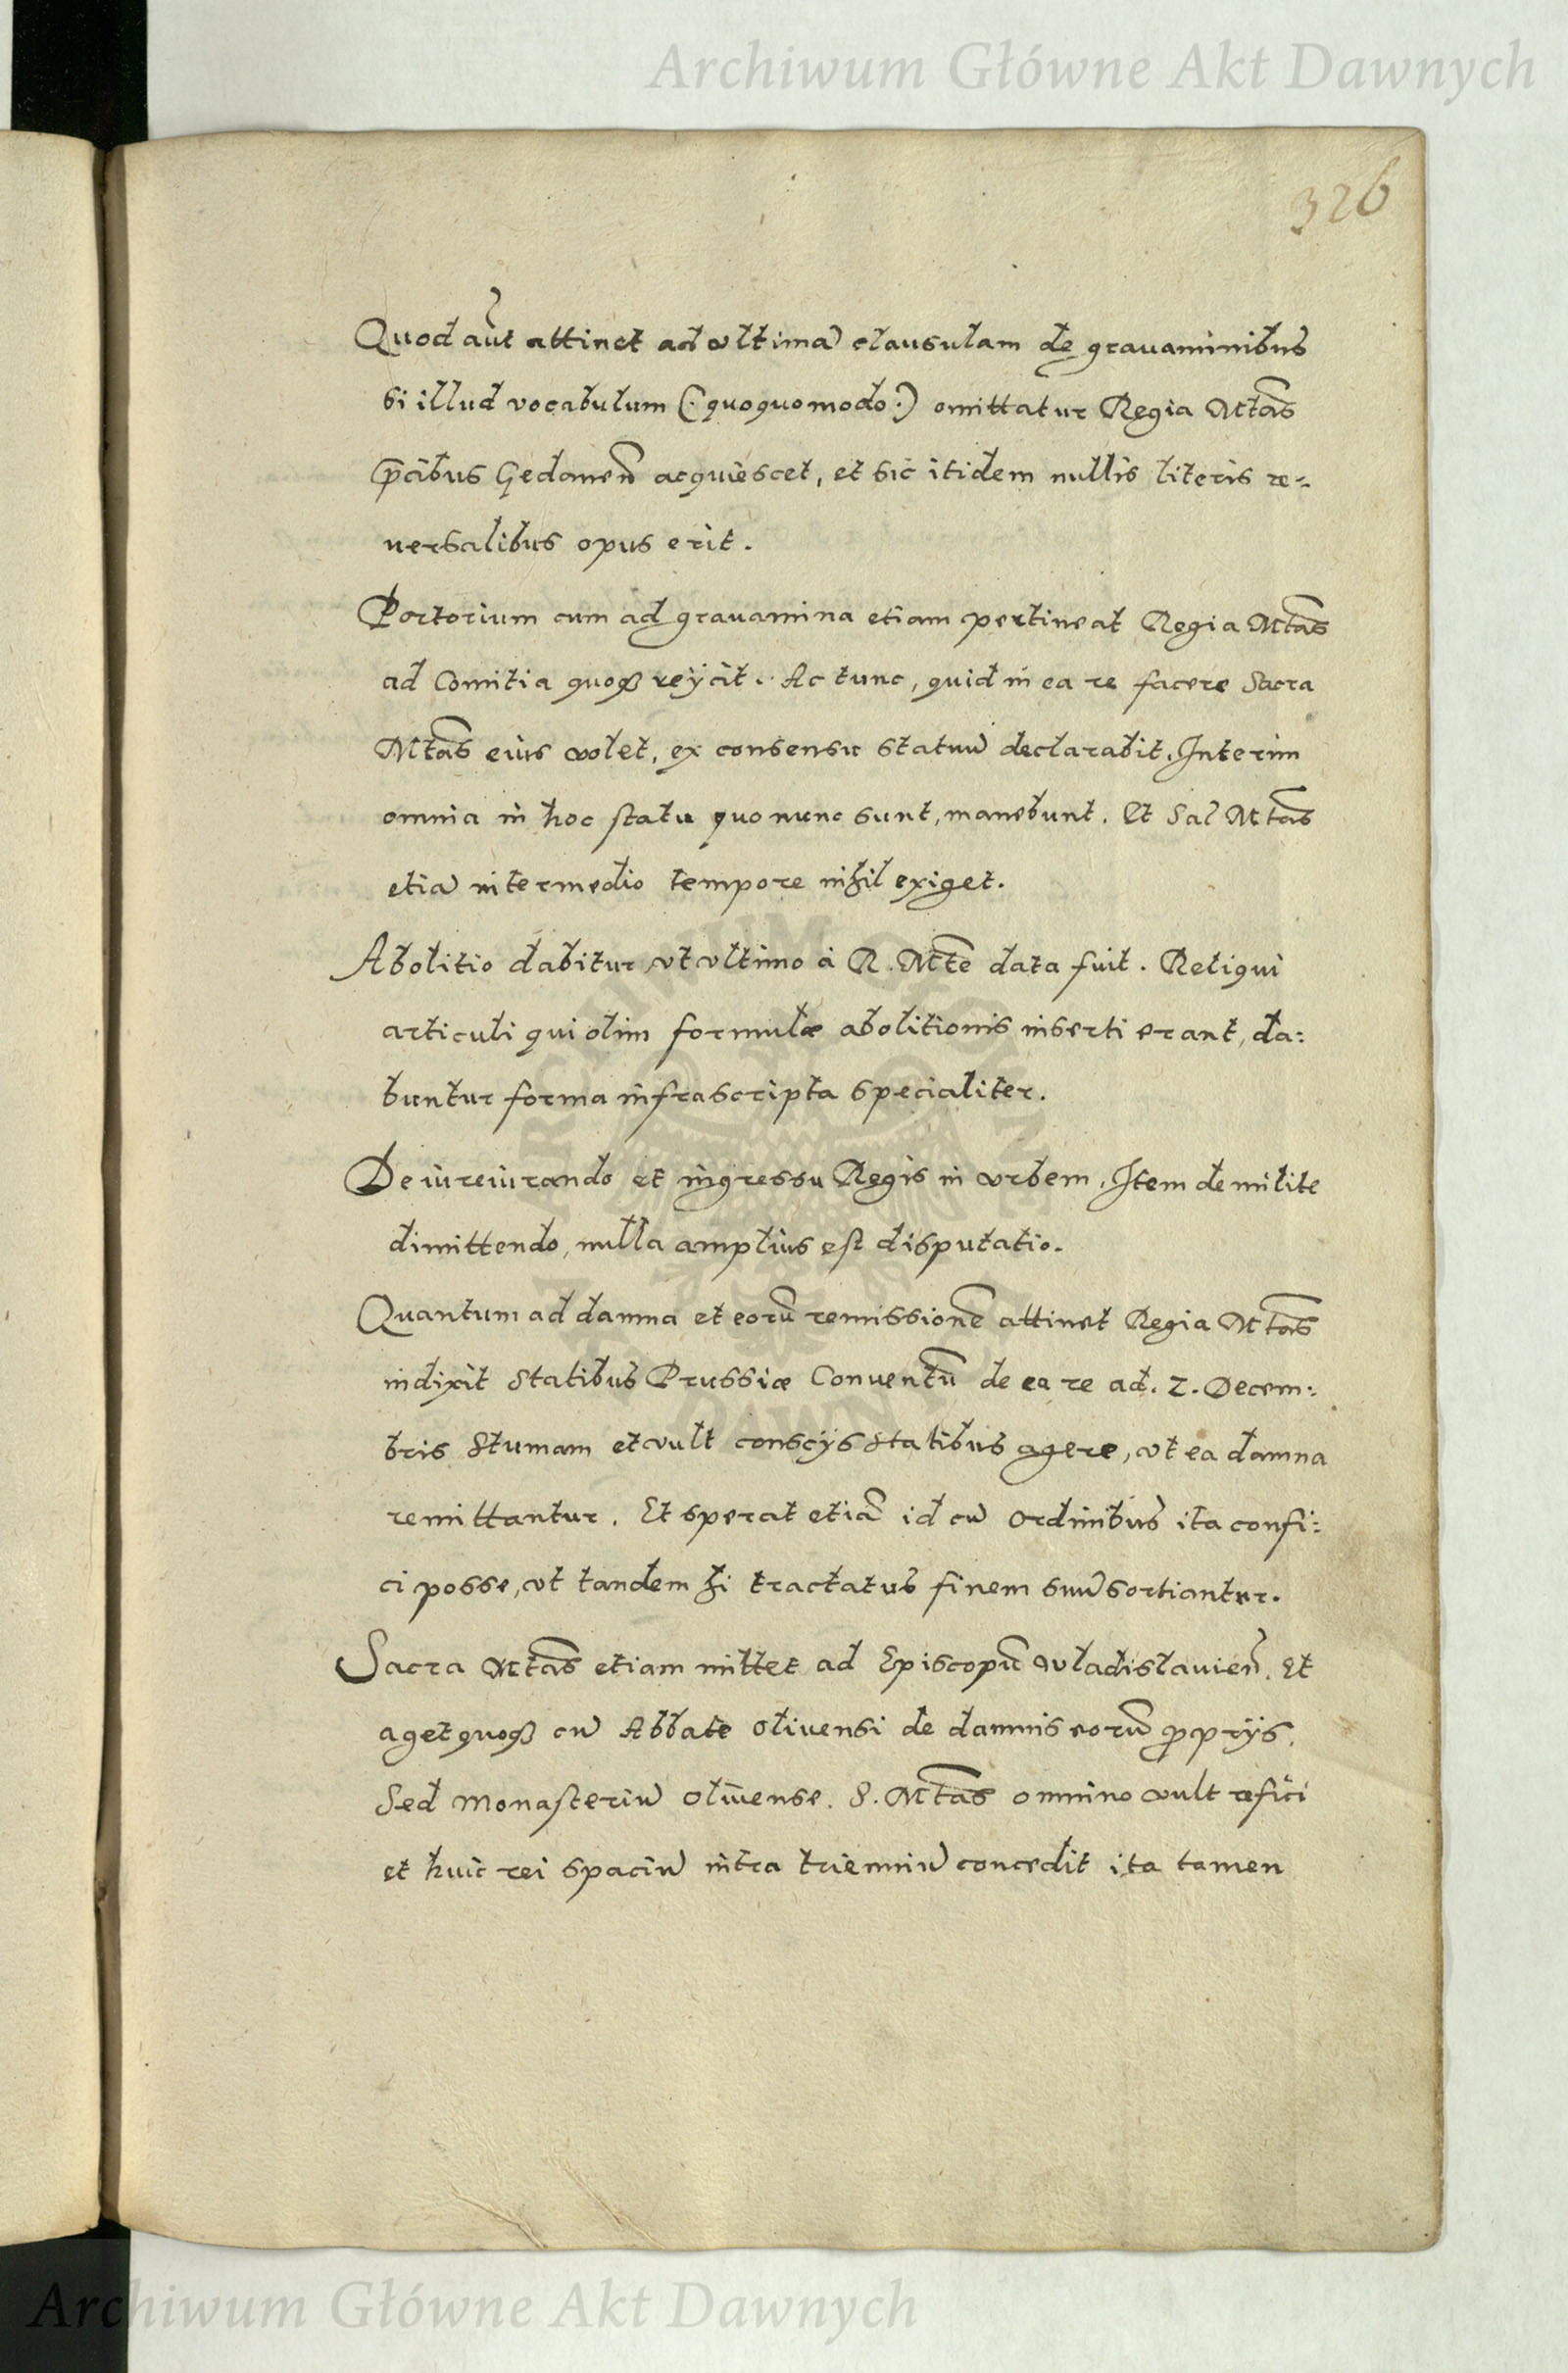 Archiwum Główne Akt Dawnych
326
Quod aūt attinet ad vltimā clausulam de grauaminibus
si illud vocabulum (: quoquomodo :) omittatur Regia Mtās
p̄cibus Gedanen̄ acquiescet, et sic itidem nullis literis re-
uersalibus opus erit.
Portorium cum ad grauamina etiam pertineat Regia Mtās
ad Comitia quoqꝫ reijcit. Ac tunc, quid in ea re facere Sacra
Mtās eius volet, ex consensu statuū declarabit. Interim
omnia in hoc statu quo nunc sunt, manebunt. Et Sac Mtās
etiā intermedio tempore nihil exiget.
Abolitio dabitur vt vltimo à R. Mtē data fuit. Reliqui
articuli qui olim formulæ abolitionis inserti erant, da:
buntur forma infrascripta specialiter.
De iureiurando et ingressu Regis in vrbem, Item de milite
dimittendo, nulla amplius est disputatio.
Quantum ad damna et eorū remissionē attinet Regia Mtās
indixit Statibus Prussiæ Conuentū de ea re ad. 2. Decem:
bris Stumam et vult conscijs Statibus agere, vt ea damna
remittantur. Et sperat etiā id cū Ordinibus ita confi:
ci posse, vt tandem hi tractatus finem suū sortiantur.
Sacra Mtās etiam mittet ad Episcopū Vladislauien̄. Et
aget quoqꝫ cū Abbate Oliuensi de damnis eorū ꝓprijs,
Sed Monasteriū Oliuense. S. Mtās omnino vult refici
et huic rei spaciū intra trienniū concedit ita tamen
ARCHIWUM GŁÓWNE AKT DAWNYCH
Archiwum Główne Akt Dawnych